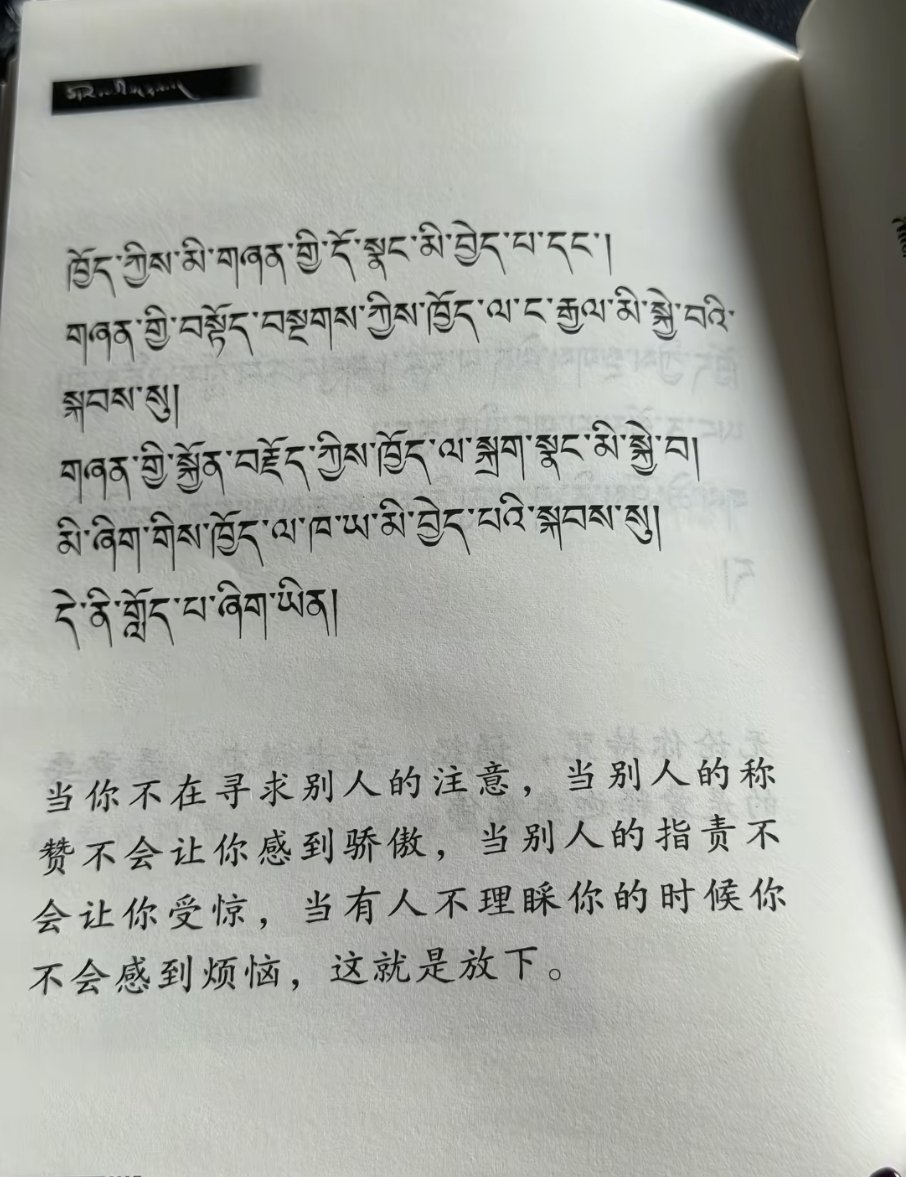 ཁྱོད་ཀྱིས་མི་གཞན་གྱི་དོ་སྣང་མི་བྱེད་པ་དང་།
གཞན་གྱི་བསྟོད་བསྔགས་ཀྱིས་ཁྱོད་ལ་ང་རྒྱལ་མི་སྐྱེ་བའི་
སྐབས་སུ།
གཞན་གྱི་སྐྱོན་བརྗོད་ཀྱིས་ཁྱོད་ལ་སྐྲག་སྣང་མི་སྐྱེ་བ།
མི་ཞིག་གིས་ཁྱོད་ལ་ཁ་ཡ་མི་བྱེད་པའི་སྐབས་སུ།
དེ་ནི་གློད་པ་ཞིག་ཡིན།
当你不在寻求别人的注意，当别人的称
赞不会让你感到骄傲，当别人的指责不
会让你受惊，当有人不理睬你的时候你
不会感到烦恼，这就是放下。